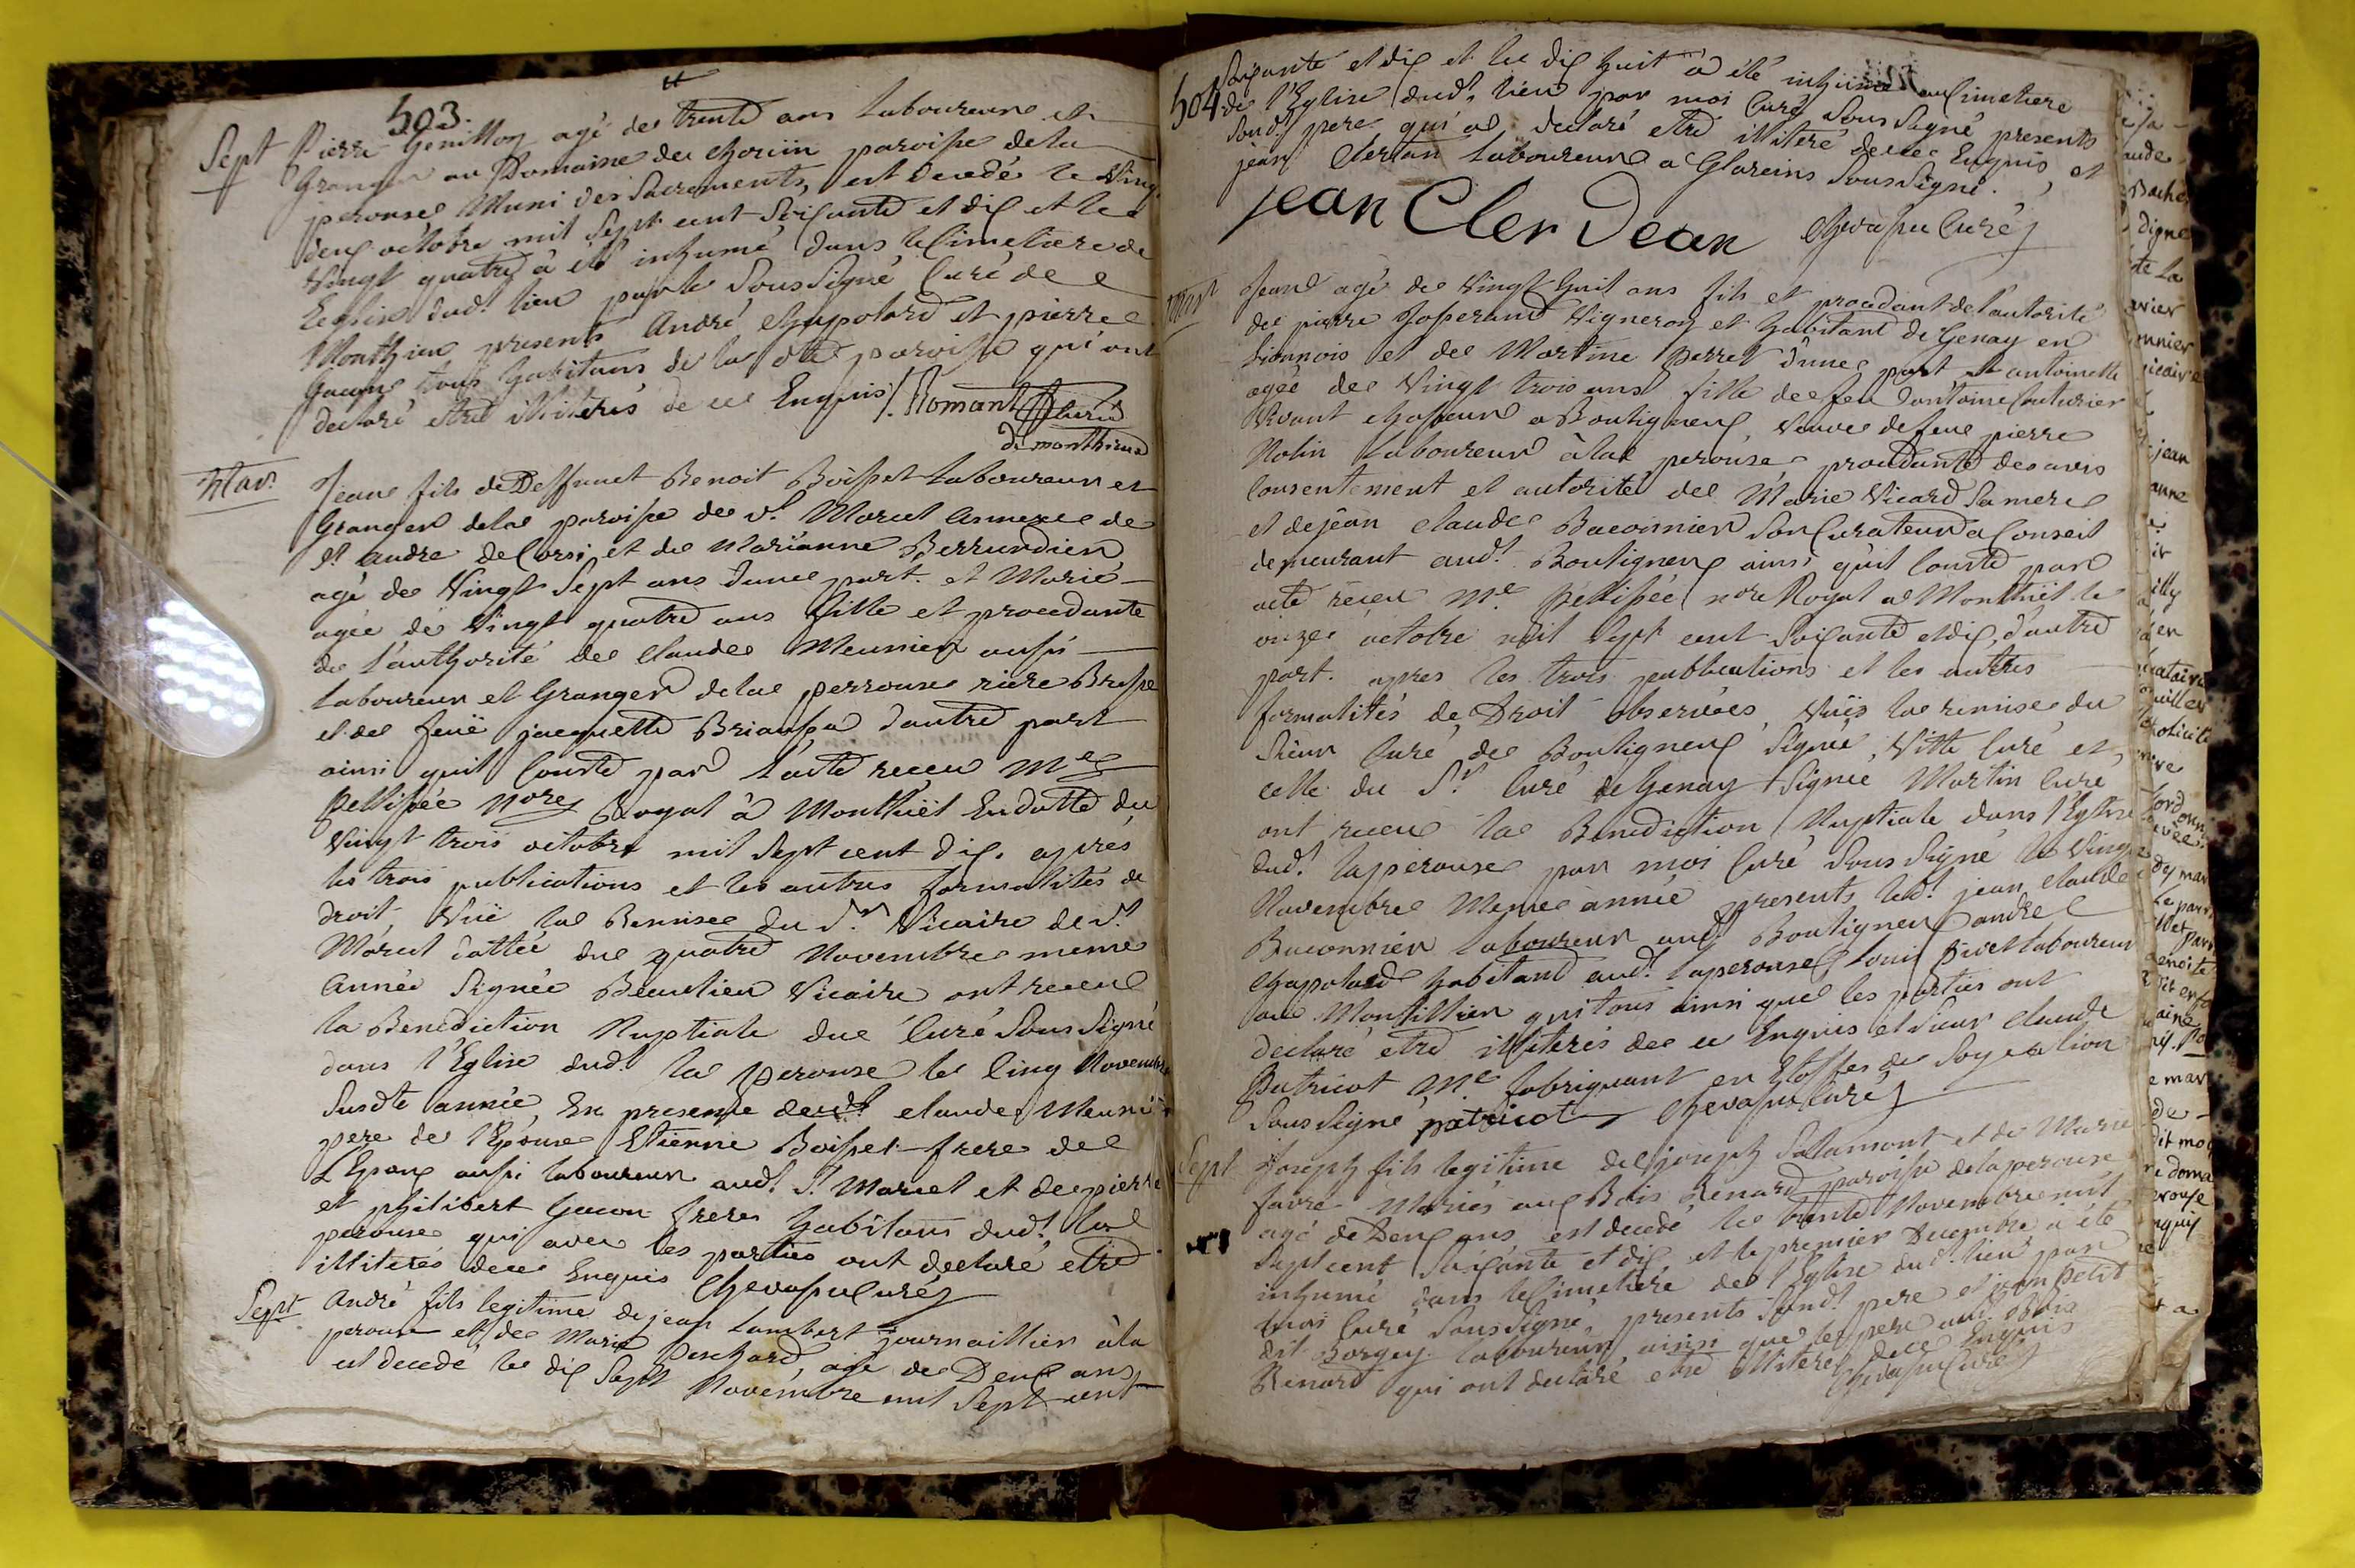 503.
Sept Pierre Genillon agé de trente ans Laboureur et
Granger au Domaine de chorün paroisse de la
perouse Muni des Sacrements, est decedé le Vingt
deux octobre mil sept cent Soixante et dix et le
Vingt quatre à été inhumé dans le Cimetiere de
L'eglise dud.t lieu par le Sous Signé Curé de
Monthieu presents André chapolard et pierre
Gacon tous habitans de la dte paroisse qui ont
declaré etre illiterés de ce Enquis /. Romant Curé
de monthieux
Mar. Jean fils de Deffunct Benoit Boisset Laboureur et
Granger de la paroisse de St Marcel annexe de
St andre de Corsi, et de Marianne Berrundier
agé de Vingt Sept ans d'une part. et Marie
agée de Vingt quatre ans fille et procedante
de l'authorité de claude Meunier aussi
Laboureur et Granger de la perrouse riere Bresse
et de feüe jacquette Briansca d'autre part
ainsi quil Conste par l'acte receu Me
Pellissée Nore Royal à Monthüel En datte du
Vingt trois octobre mil Sept cent dix. après
les trois publications et les autres formalités de
droit, Vüe la Remise du Sr. Vicaire de St
Marcel dattée du quatre Novembre meme
année Signée Beaulieu Vicaire ont receu
la Benediction Nuptiale du Curé Sous Signé
dans l'Eglise dud.t la perouse le Cinq Novembre
Susdte année, En presence de claude Meunier
pere de l'Epouse Etienne Boisset frere de
L'Epoux aussi laboureur aud.t St Marcel et de pierre
et philibert Gacon freres habitans dud.t la
perouse qui avec les parties ont declaré etre
illiterés de ce Enquis Chevassu Curé
Sept André fils legitime de jean Lambert journaillier à la
perouse et de Marie Penchard, agé de Deux ans
est decedé le dix Sept Novembre mil Sept cent
504. Soixante et dix et le dix huit a été inhumé au Cimetiere
de l'Eglise dud.t lieu par moi Curé Sous Signé presents
Sond.t pere qui a declaré etre illiteré de ce Enquis, et
jean Clerdan Laboureur a Glareins Sous Signé.
jean Cler Dean Chevassu Curé
Mar Jean agé de Vingt huit ans fils et procedant de l'autorité
de pierre Josserand Vigneron et habitant de Genay en
Lionnois et de Martine Perret d'une part et antoinette
agée de Vingt trois ans fille de feu d'antoine Couturier
Vivant chasseur a Bouligneux, Veuve de feu pierre
Molin Laboureur à la perouse procedante des avis
Consentement et autorité de Marie Vicard Sa mere
et de jean claude Baconnier Son Curateur a Conseil
demeurant aud.t Bouligneux ainsi qu'il Conste par
acte receu Me Pellissée nore Royal a Monthüel le
onze octobre mil Sept cent Soixante et dix, d'autre
part. apres les trois publications et les autres
formalités de Droit observées, Vües la remise du
Sieur Curé de Bouligneux Signée, Vitte Curé et,
celle du Sr. Curé de Genay Signée Martin Curé
ont receu la Benediction Nuptiale dans l'Eglise
dud.t la perouse par moi Curé Sous Signé le Vingt
Novembre Meme année presents led.t jean claude
Baconnier laboureur aud.t Bouligneux andre
chapolard habitant aud.t la perouse Louis Pivet laboureur
au Montillier qui tous ainsi que les parties ont
declaré etre illiterés de ce Enquis et Sieur claude
Patricot Me. fabriquant en Etoffes de Soye a Lion
Sous Signé patricot Chevassu Curé
Sept Joseph fils legitime de joseph Salamont et de Marie
favre Mariés aux Bois Renard paroisse de la perouse
agé de Deux ans est decedé le trente Novembre mil
Sept cent Soixante et dix, et le premier Decembre a été
inhumé dans le Cimetiere de l'Eglise dud.t lieu par
moi Curé Sous Signé, presents Sond.t pere et jean Petit
dit Borgey laboureur ainsi que le pere aud.t Bois
Renard qui ont declaré etre illiterés de ce Enquis
Chevassu Curé